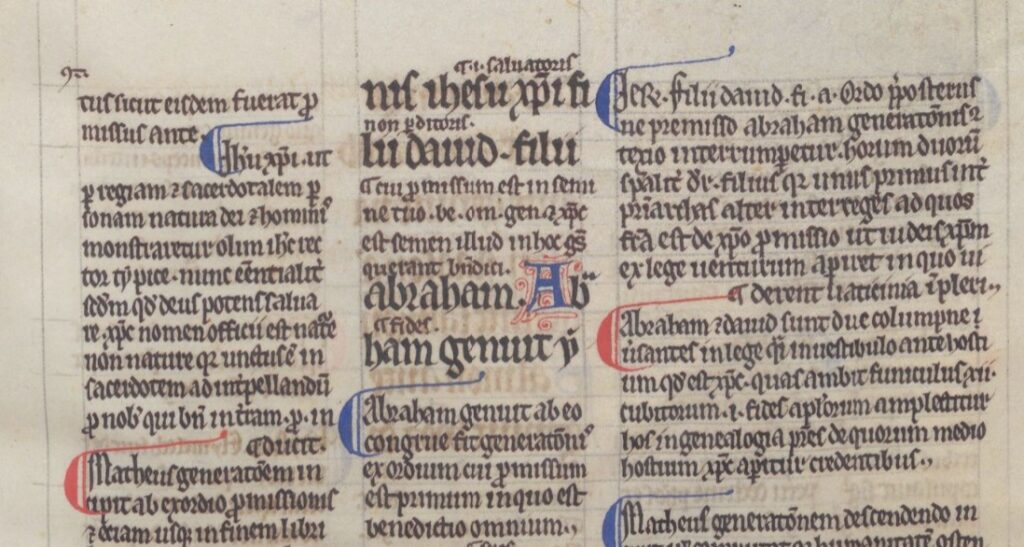 tus sicut eisdem fuerat p̄
missus ante.
Ih'u xp̄i. ut
ꝑ regiam ⁊ sacerdotalem ꝑ
sonam natura dei ⁊ hominis
monstraretur olim ih'c rec
tor typice. nunc eēntialit̄
sc̄dm qd̄ deus potens salua
re. xp̄c nomen officii est nat̄e
non nature qr unctus ē in
sacerdotem ad int̄pellandū
ꝓ nob' qui bn̄ in c̄tam. ꝓ. in
ducit.
Matheus generatōem in
cipit ab exordio ꝓmissionis
⁊ etiam usq; in finem libri
.i. saluatoris
nis ihesu xp̄i fi
non ꝑditoris.
lii dauid. filii
cui ꝓmissum est in semi
ne tuo. be. om. gen. ⁊ xp̄c
est semen illud in hoc gs̄
querant bn̄dici.
abraham. Ab
fides
ham genuit ẏ
Abraham genuit ab eo
congrue fit generatōnis
exordium cui ꝓmissum
est primum in quo est
benedictio omnium.
filii dauid. fi. a. Ordo p̄posterus
ne premisso abraham generatōnis
texio interrumperetur. horum duorū
sp̄alit̄ dr̄. filius qr unus primus int̄
pr̄iarchas alter inter reges ad quos
fc̄a est de xp̄o ꝓmissio ut iudeis xp̄m
ex lege uenturum aꝑiret in quo ui
derent uaticinia īpleri.
Abraham ⁊ dauid sunt due columpne
in lege q̄i in uestibulo ante hosti
um qd̄ est xp̄c. quas ambit funiculus .xii.
cubitorum .i. fides ap'lorum amplectitur
hos in genealogia p̄res de quorum medio
hostium xp̄c aꝑitur credentibus.
Matheus generatōnem descendendo in